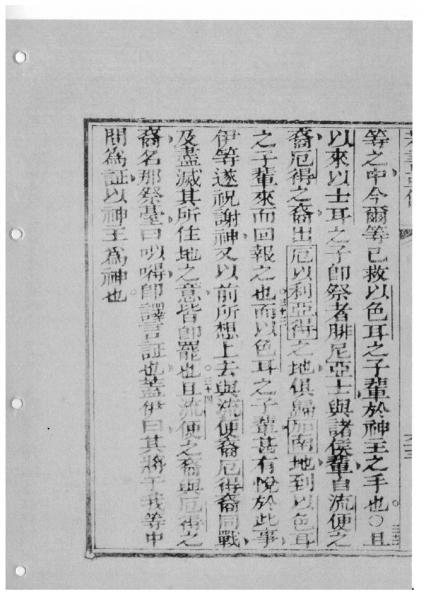 等之中今爾等已救以色耳之子輩於神王之手也。○且
以來以士耳之子卽祭者腓尼亞士與諸侯輩自流便之
裔厄得之裔出厄以利亞得之地俱歸加南地到以色耳
之子輩來而回報之也而以色耳之子輩甚有悅於此事
伊等遂祝謝神又以前所想上去與流便裔厄得裔同戰
及盡滅其所住地之意皆卽罷也且流便之裔與厄得之
裔名那祭臺曰㕽嘚卽譯言証也蓋伊曰其將于我等中
間爲証以神王爲神也